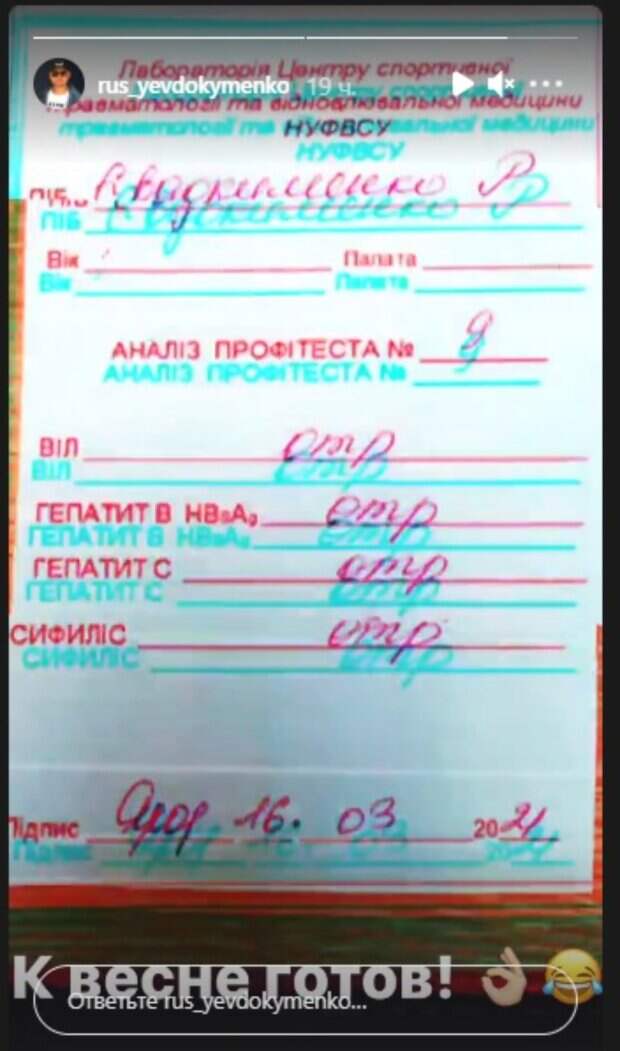 rus_yevdokymenko 19 ч.
Лабораторія Центру спортивної
травматології та відновлювальної медицини
НУФВСУ
ПІБ Євдокименко Р
Вік Палата
АНАЛІЗ ПРОФІТЕСТА №
ВІЛ отр
ГЕПАТИТ В HBsAg отр
ГЕПАТИТ С отр
СИФИЛІС отр
Підпис 16. 03 2021
К весне готов! 👌😂
Ответьте rus_yevdokymenko...